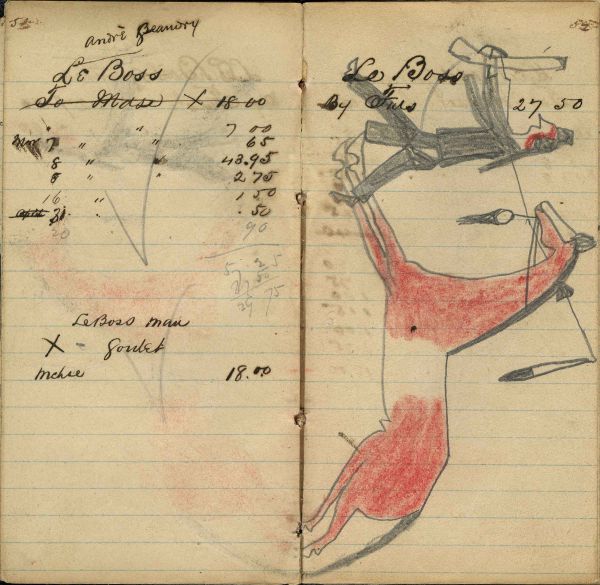 André Beaudry
Le Boss
To Mdse X 18.00
" " 7 00
Mar 7 " " 65
8 " " 43.95
8 " " 2.75
16 " 1.50
31 " .50
20 90
LeBoss man
X - Goulet
Mchse 18.00
Le Boss
By Furs 27 50